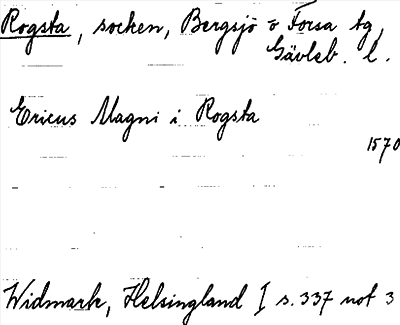 Rogsta, socken, Bergsjö o Forsa tg,
Gävleb. l.
Ericus Magni i Rogsta
1570
Widmark, Helsingland I s. 337 not 3